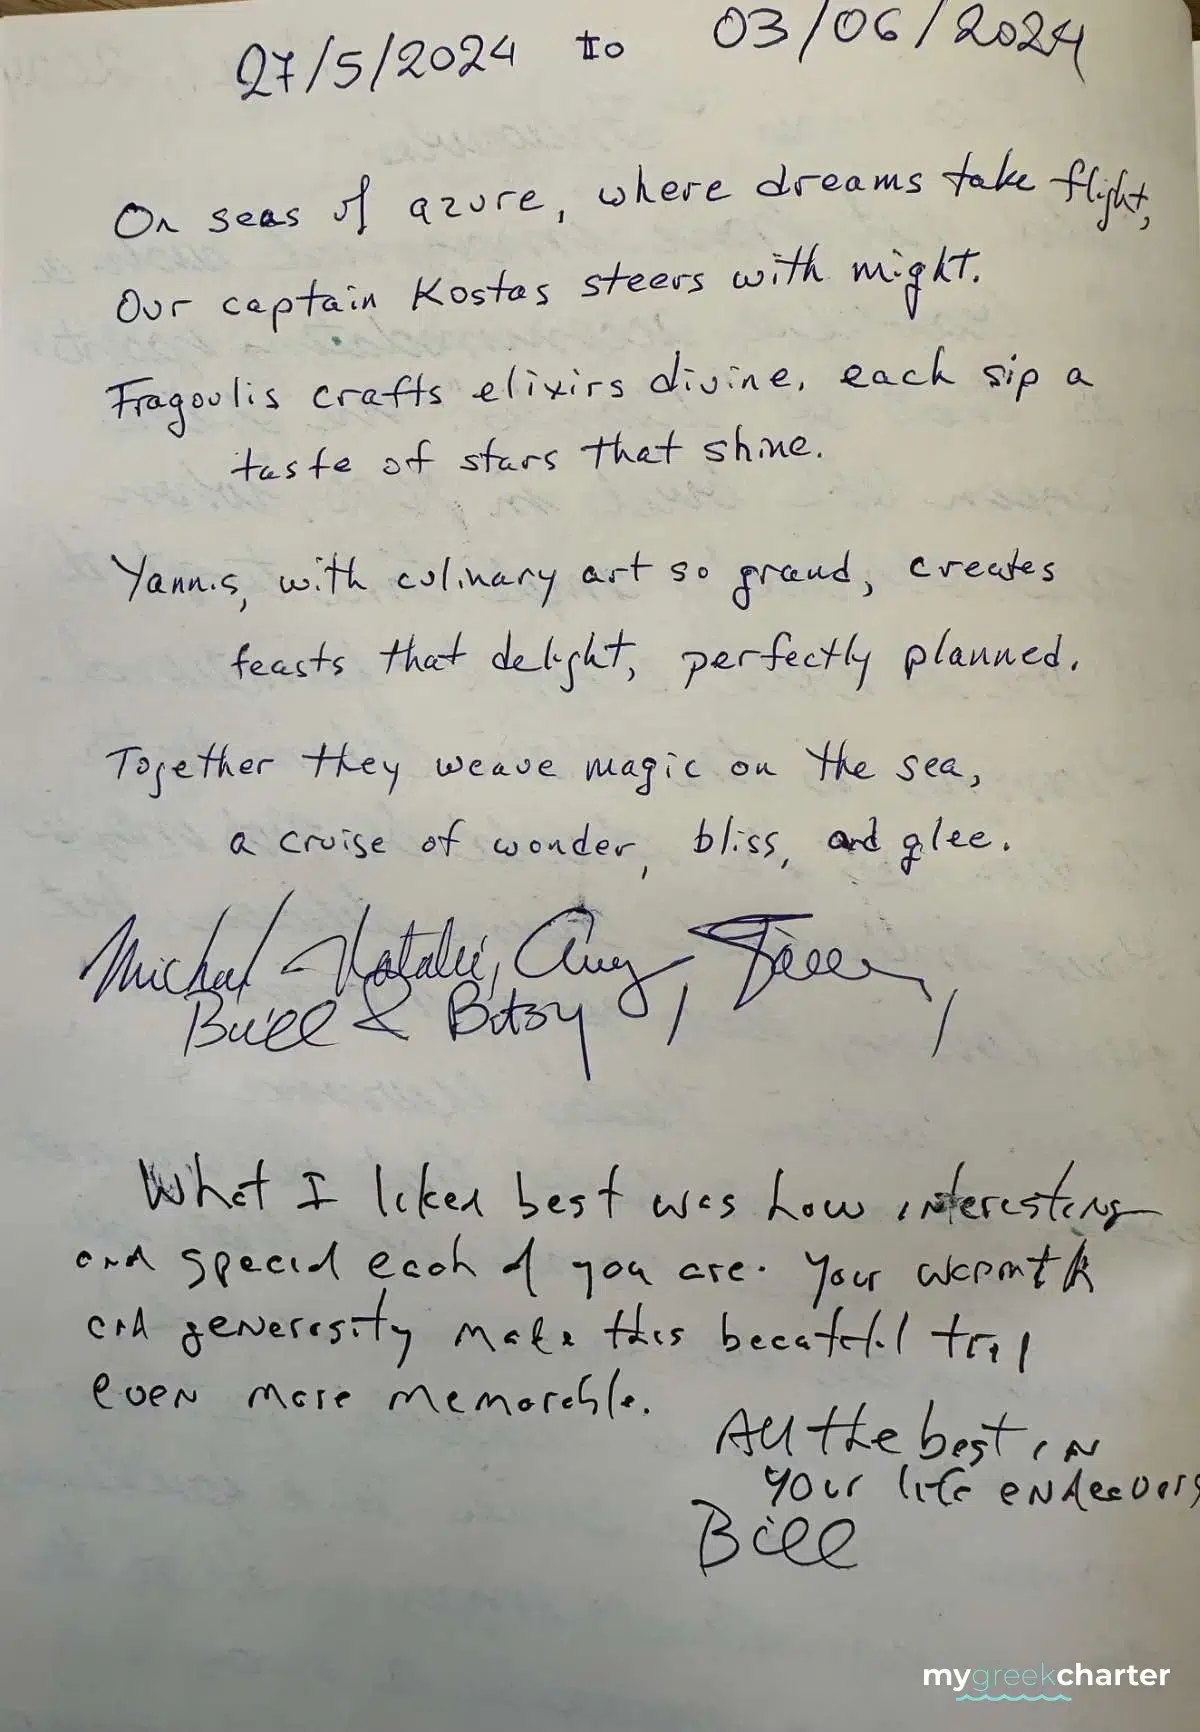 27/5/2024 to 03/06/2024
On seas of azure, where dreams take flight,
Our captain Kostas steers with might.
Fragoulis crafts elixirs divine, each sip a
taste of stars that shine.
Yannis, with culinary art so grand, creates
feasts that delight, perfectly planned.
Together they weave magic on the sea,
a cruise of wonder, bliss, and glee.
Michael Natalie,
Bill & Betsy
What I liked best was how interesting
and special each of you are. Your warmth
and generosity make this beautiful trip
even more memorable.
All the best in
your life endeavors
Bill
mygreekcharter